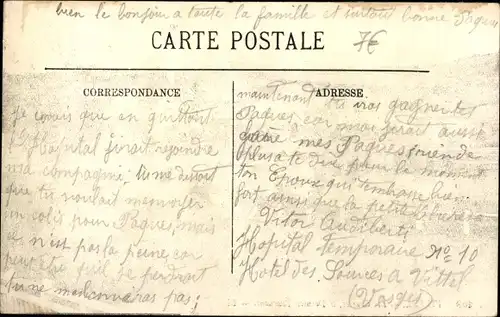 bien le bonjour a toute la famille et surtout bonne Paques
CARTE POSTALE
7€
CORRESPONDANCE
je que en quittant
l'Hopital j'irait rejoindre
ma compagnie. tu me disait
que tu voulait m'envoyer
un colis pour Paques, mais
ce n'est pas la peine, car
peut etre quil se perdrait
tu ne pas;
ADRESSE
maintenant tu vas gagner tes
Paques, car moi j'irait aussi
mes Paques
plus a te dire pour le moment
ton Epoux qui t'embrasse bien
fort ainsi que la petite
Victor Audibert
Hopital temporaire No 10
Hotel des Sources a Vittel
(Vosges)